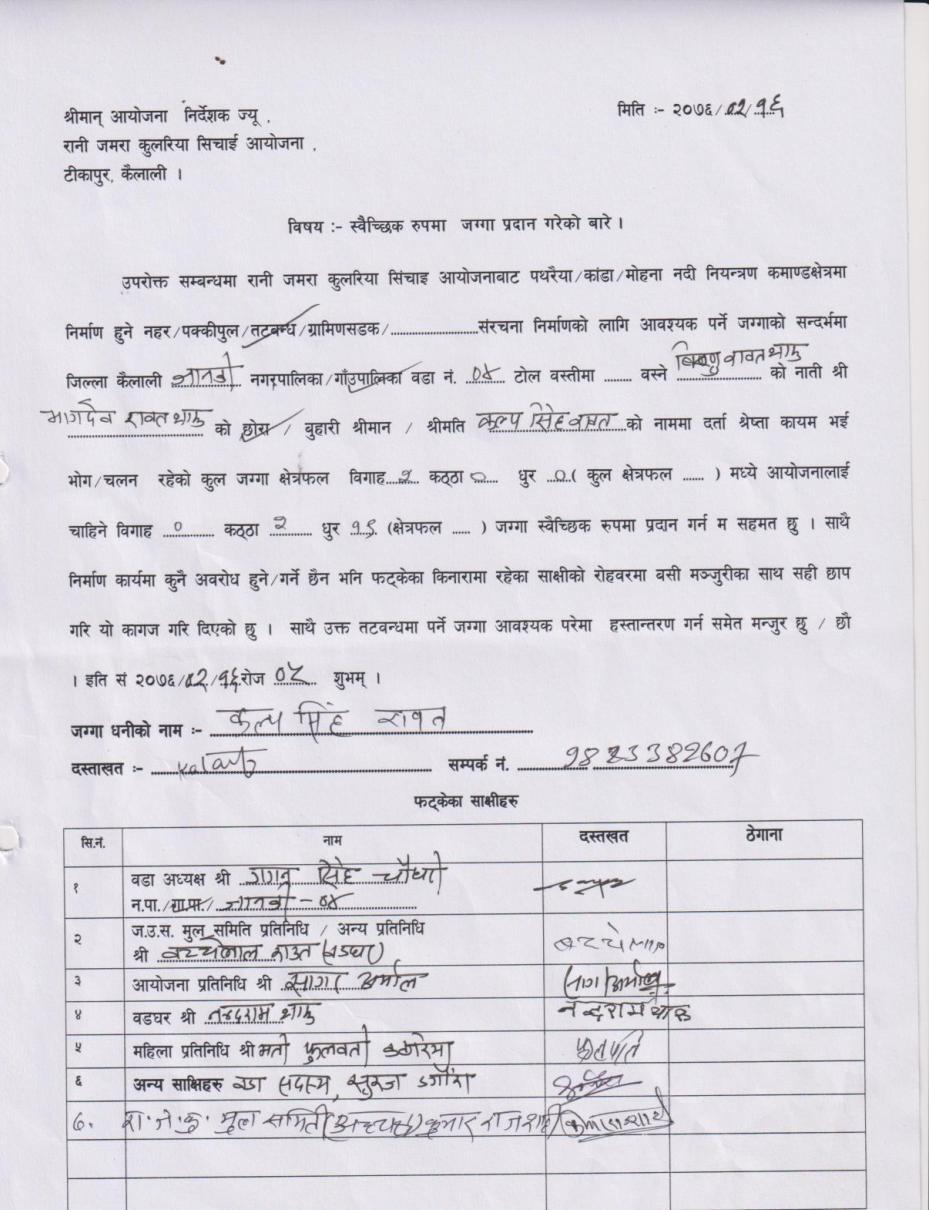 श्रीमान् आयोजना निर्देशक ज्यू , मिति :- २०७६/०२/१६
रानी जमरा कुलरिया सिचाई आयोजना ,
टीकापुर, कैलाली ।
विषय :- स्वैच्छिक रुपमा जग्गा प्रदान गरेको बारे ।
उपरोक्त सम्बन्धमा रानी जमरा कुलरिया सिंचाइ आयोजनाबाट पथरैया/कांडा/मोहना नदी नियन्त्रण कमाण्डक्षेत्रमा
निर्माण हुने नहर/पक्कीपुल/तटबन्ध/ग्रामिणसडक/........................संरचना निर्माणको लागि आवश्यक पर्ने जग्गाको सन्दर्भमा
जिल्ला कैलाली जानकी नगरपालिका/गाँउपालिका वडा नं. ०४ टोल वस्तीमा ....... वस्ने रावत थारु को नाती श्री
भागदेव रावत थारु को छोरा / बुहारी श्रीमान / श्रीमति कल्प सिंह रावत को नाममा दर्ता श्रेष्ता कायम भई
भोग/चलन रहेको कुल जग्गा क्षेत्रफल विगाह कठ्ठा ० धुर ० ( कुल क्षेत्रफल ...... ) मध्ये आयोजनालाई
चाहिने विगाह ० कठ्ठा २ धुर (क्षेत्रफल ..... ) जग्गा स्वैच्छिक रुपमा प्रदान गर्न म सहमत छु । साथै
निर्माण कार्यमा कुनै अवरोध हुने/गर्ने छैन भनि फट्केका किनारामा रहेका साक्षीको रोहवरमा बसी मञ्जुरीका साथ सही छाप
गरि यो कागज गरि दिएको छु । साथै उक्त तटवन्धमा पर्ने जग्गा आवश्यक परेमा हस्तान्तरण गर्न समेत मन्जुर छु / छौ
। इति सं २०७६/०२/१६ रोज शुभम् ।
जग्गा धनीको नाम :- कल्प सिंह रावत
दस्ताखत :- सम्पर्क नं. 9823382607
फट्केका साक्षीहरु
सि.नं. नाम दस्तखत ठेगाना
१ वडा अध्यक्ष श्री गगन सिंह चौधरी
न.पा./गा.पा. जानकी - ०४
२ ज.उ.स. मुल समिति प्रतिनिधि / अन्य प्रतिनिधि
श्री बच्चेलाल राउत बच्चेलाल
३ आयोजना प्रतिनिधि श्री सागर अर्माल
४ वडघर श्री नन्दराम थारु नन्दराम थारु
५ महिला प्रतिनिधि श्रीमती फुलवती कठरिया
६ अन्य साक्षिहरु वडा सदस्य, सुरजा डगौरा
७. रा.ज.कु. मुल समिति (अध्यक्ष) कुमार राज शाही